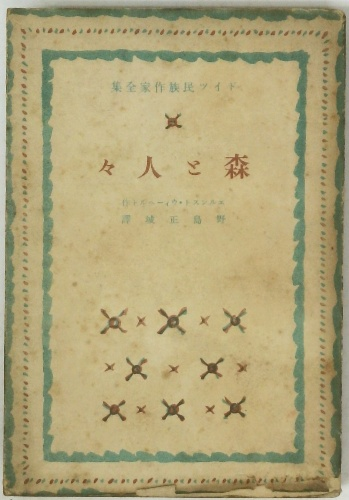 ドイツ民族作家全集
森と人々
エルンスト・ヴィーヒェルト作
野島正城譯